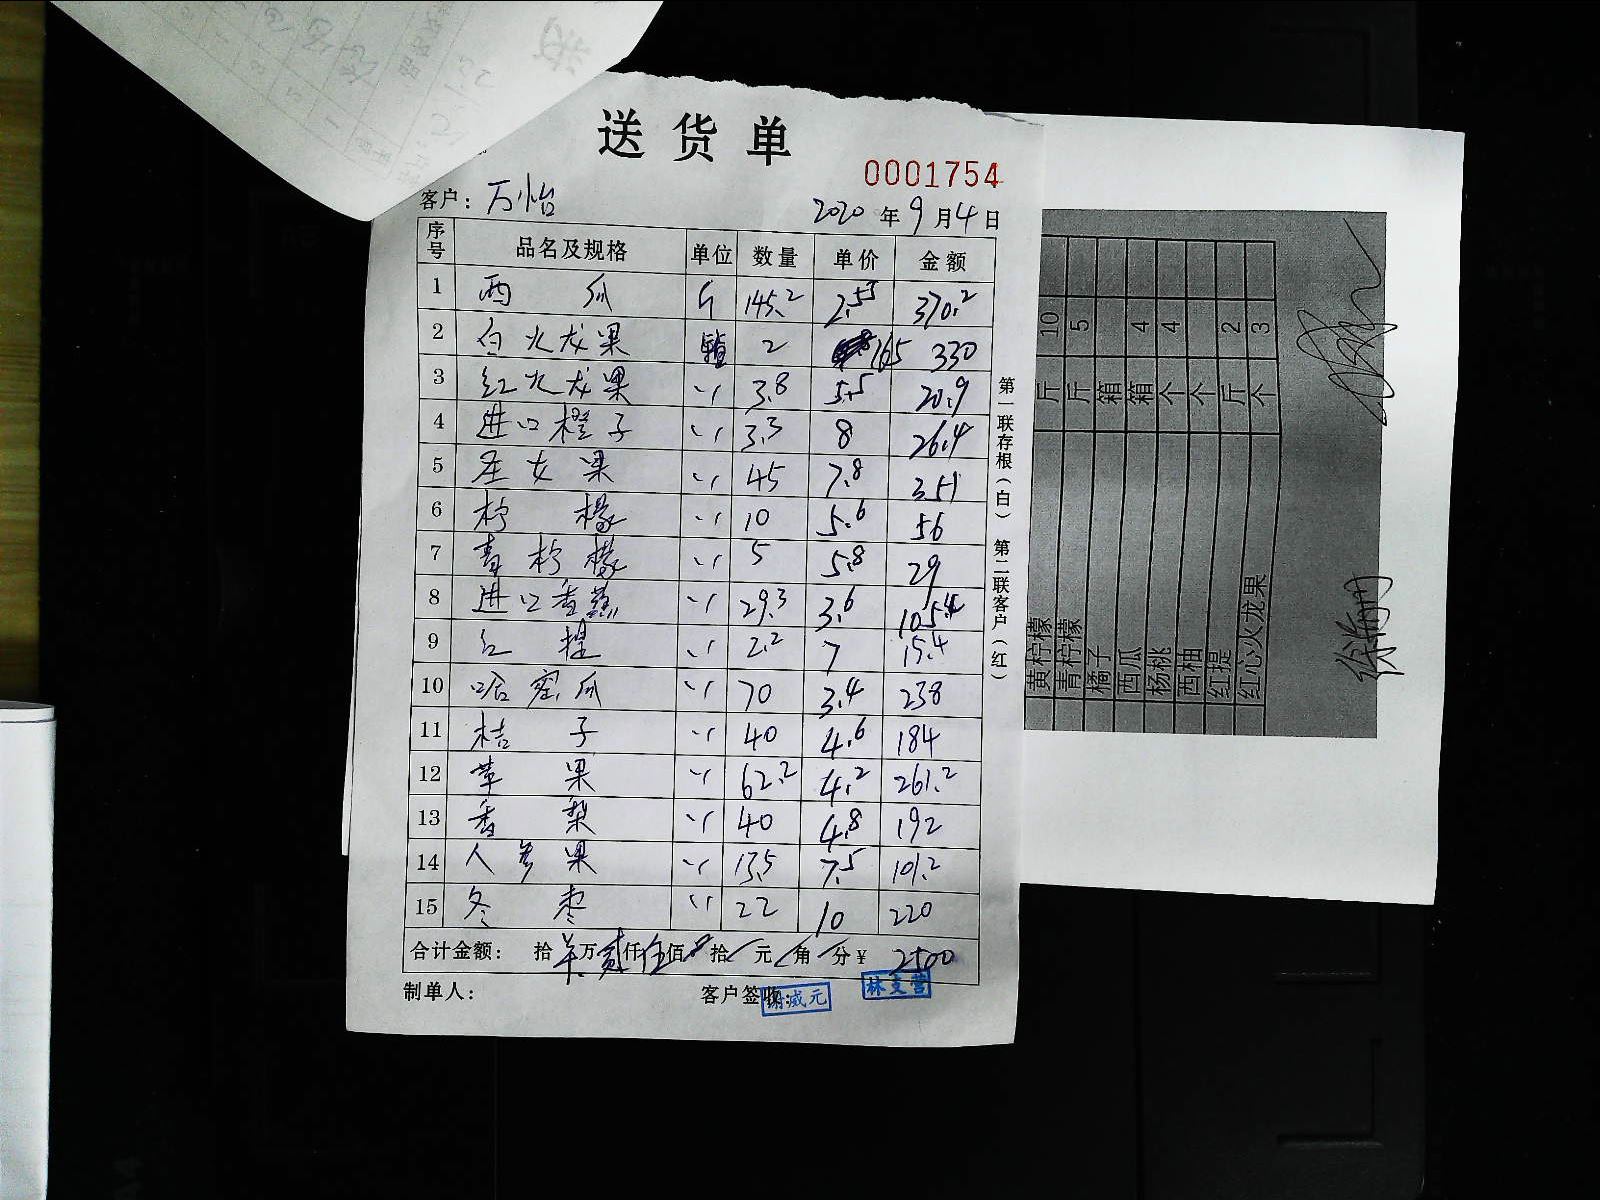 送货单
0001754
客户：万怡 2020年9月4日
序号 品名及规格 单位 数量 单价 金额
1 西瓜 斤 145.2 2.55 370.2
2 白火龙果 箱 2 165 330
3 红火龙果 〃 3.8 5.5 20.9
4 进口橙子 〃 3.3 8 26.4
5 圣女果 〃 45 7.8 351
6 柠檬 〃 10 5.6 56
7 青柠檬 〃 5 5.8 29
8 进口香蕉 〃 29.3 3.6 105.4
9 红提 〃 2.2 7 15.4
10 哈密瓜 〃 70 3.4 238
11 桔子 〃 40 4.6 184
12 苹果 〃 62.2 4.2 261.2
13 香梨 〃 40 4.8 192
14 人参果 〃 13.5 7.5 101.2
15 冬枣 〃 22 10 220
合计金额： 拾 万贰仟伍佰 拾 元 角 分￥ 2500
制单人： 客户签收：
威元
林支营
第一联存根（白） 第二联客户（红）
黄柠檬 斤 10
青柠檬 斤 5
橘子 箱
西瓜 箱 4
杨桃 个 4
西柚 个
红提 斤 2
红心火龙果 个 3